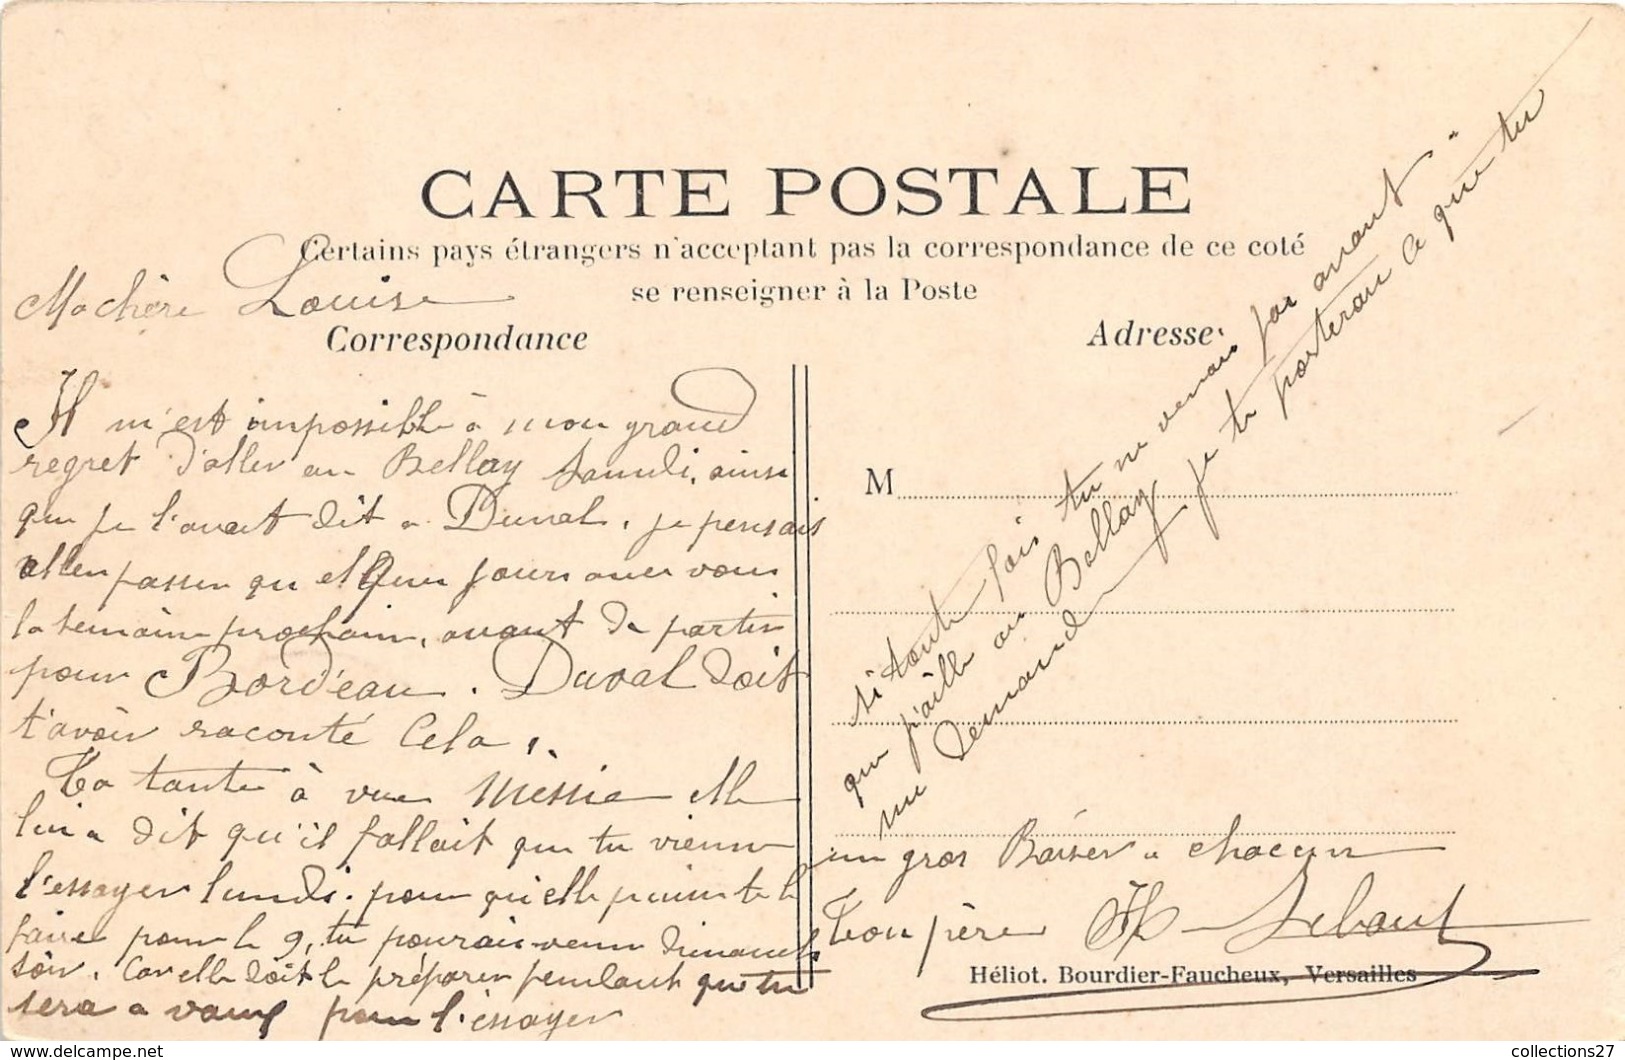 CARTE POSTALE
Certains pays étrangers n'acceptant pas la correspondance de ce coté
se renseigner à la Poste
Correspondance
Adresse
Machère Louise
Il m'est impossible à mon grand
regret d'aller au Bellay Samedi, ainsi
que je l'avait dit a Duval, je pensais
allen passer quelque jours avec vous
la semaine prochain, avant de partir
pour Bordeau. Duval doit
t'avoir raconté cela.
Ta tante à vue Messie elle
lui a dit qu'il fallait que tu vienne
l'essayer lundi. pour qu'elle puisse te le
faire pour le 9, tu pourais venir Dimanche
soir. Car elle doit le préparer pendant que tu
sera a vauf pour l'essayer
M
si toute fois tu ne venais pas avant
que j'aille au Bellay je te porterau ce que tu
me demande
un gros Baiser a chacun
Ton père Lebaut
Héliot. Bourdier-Faucheux, Versailles
collections27